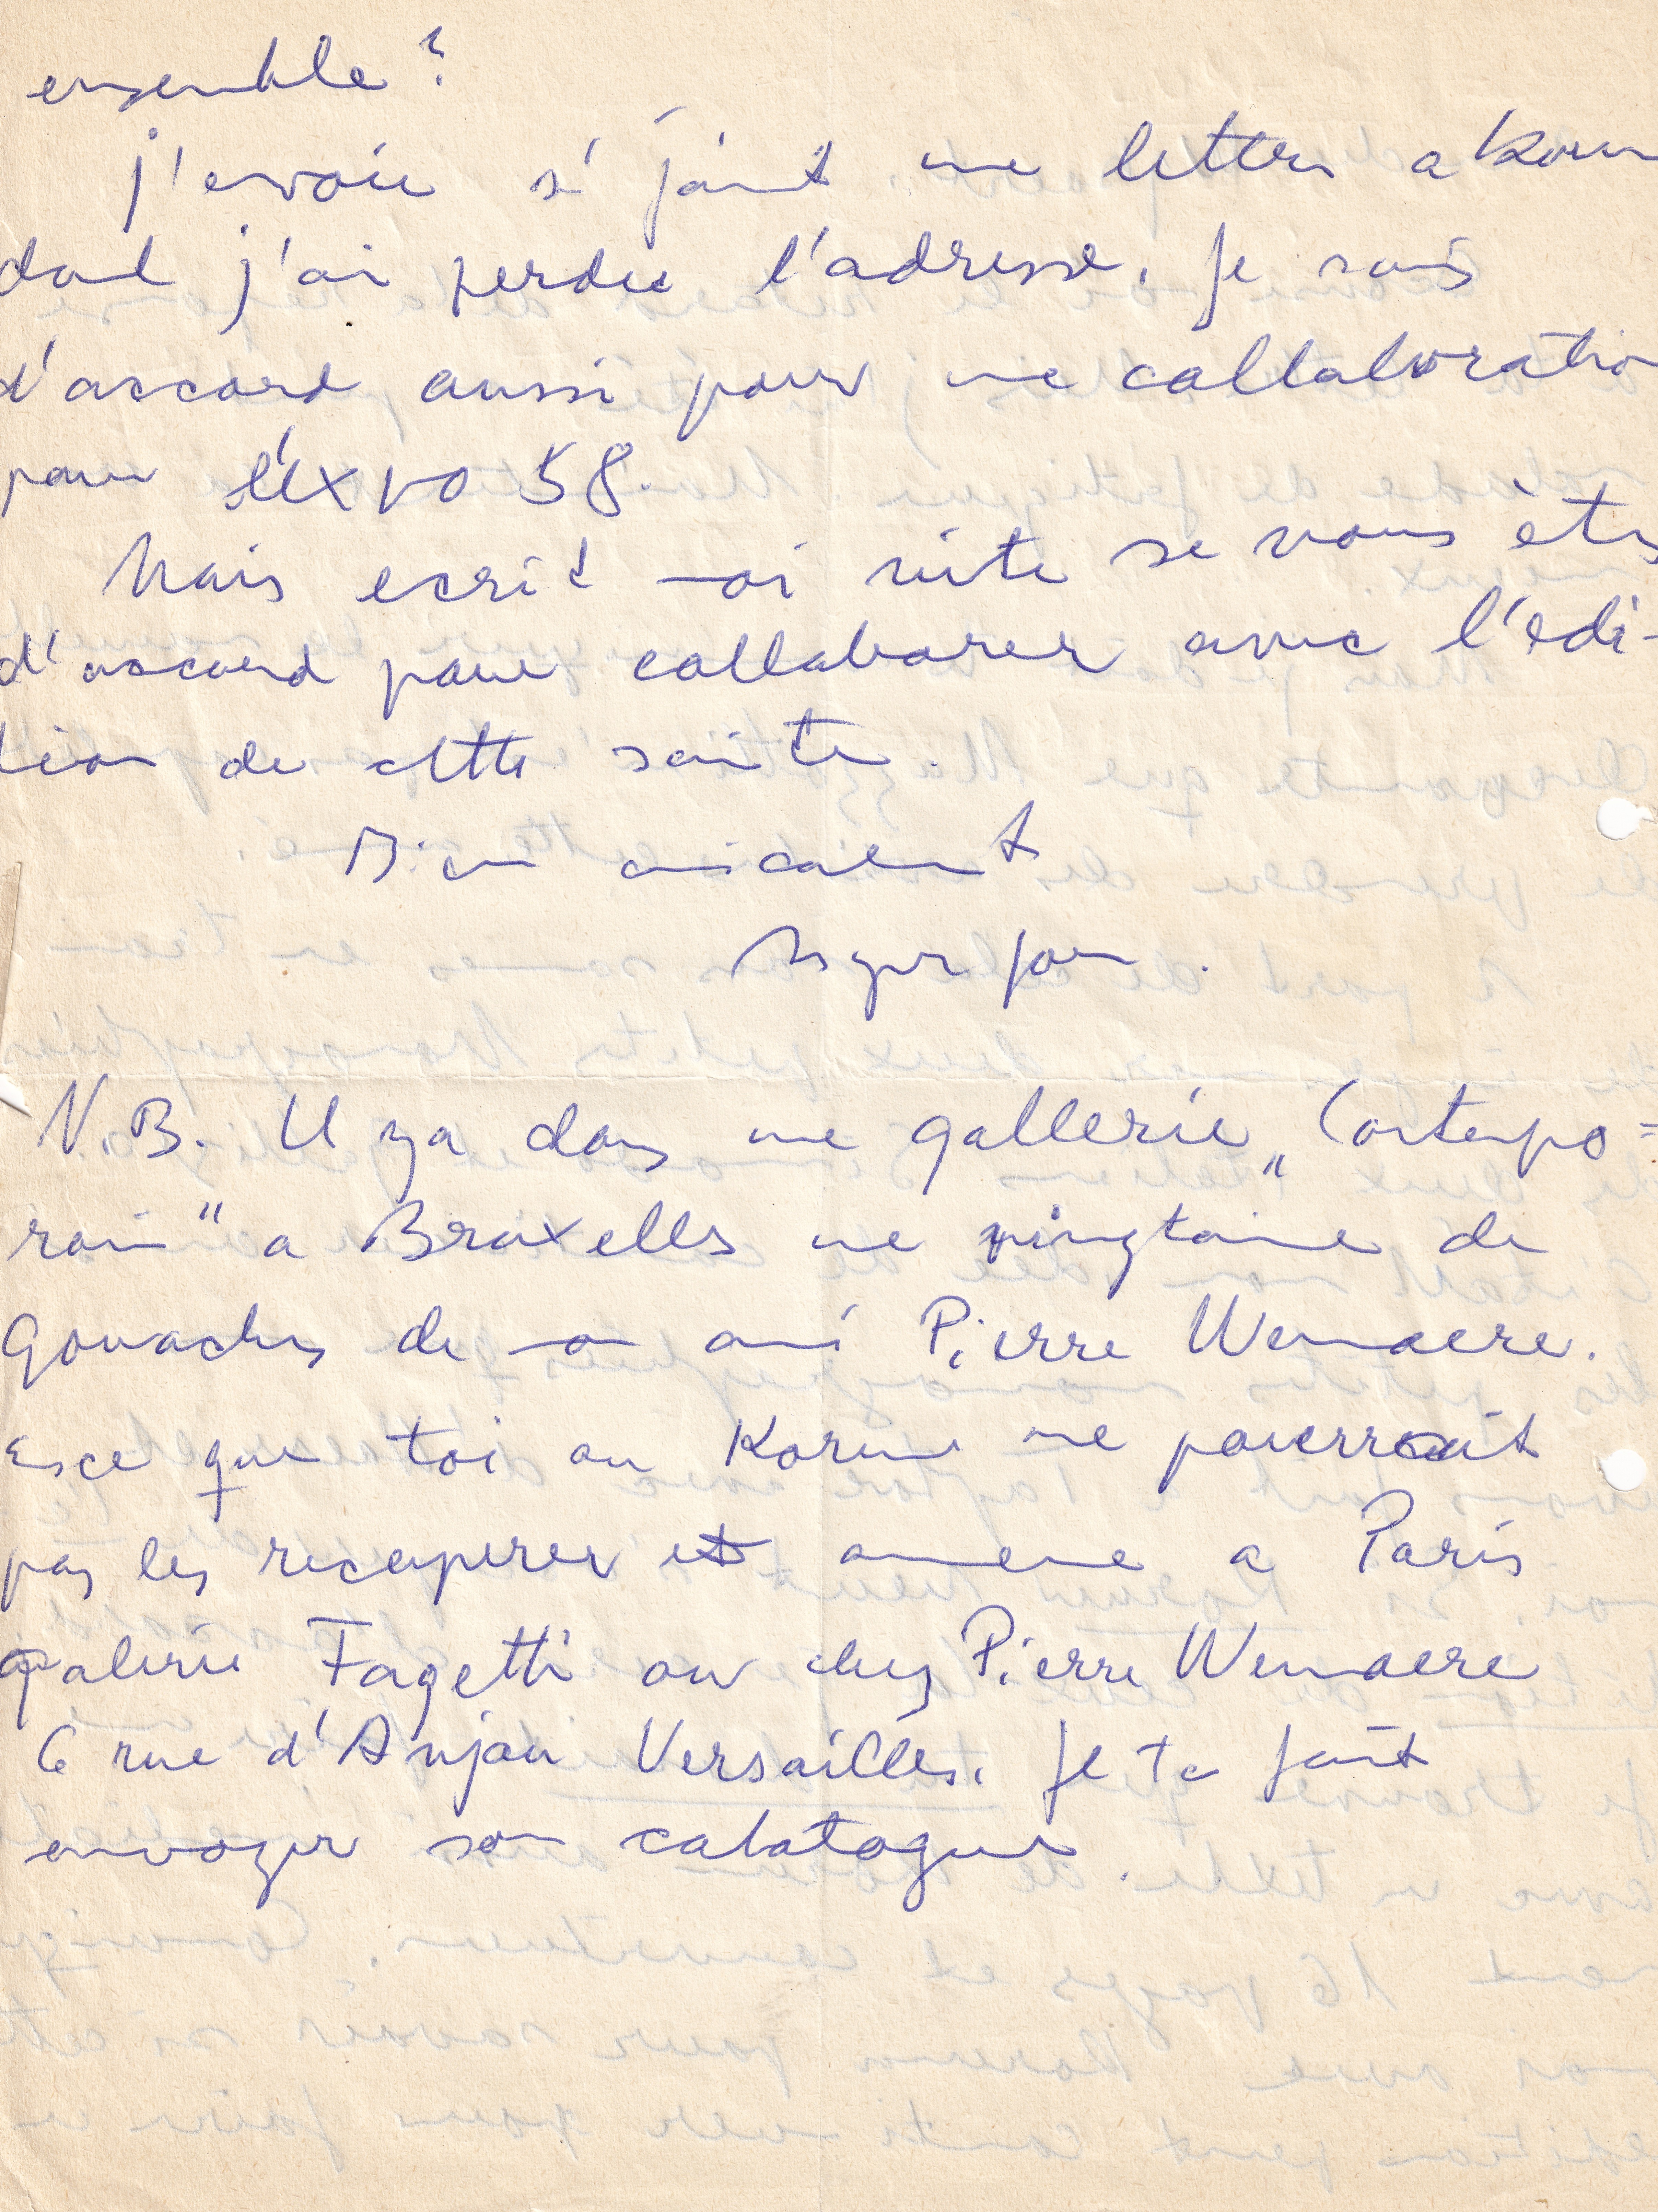 ensemble ?
j'envoie si joint une lettre a Korun
dont j'ai perdu l'adresse. Je suis
d'accord aussi pour une collaboration
pour l'Expo 58.
Mais ecrit moi vite se vous êtes
d'accord pour collaborer avec l'edi-
tion de cette suite.
Bien amicalement
Asger Jorn.
N.B. Il ya dans une gallerie „Contempo=
rain" a Bruxelles une vingtaine de
Gouaches de mon ami Pierre Wemaere.
Esce que toi ou Korun ne pouerrait
pas les recuperer et amene a Paris
galerie Fagetti ou chez Pierre Wemaere
6 rue d'Anjou Versailles. Je te fait
envoyer son catatogue.